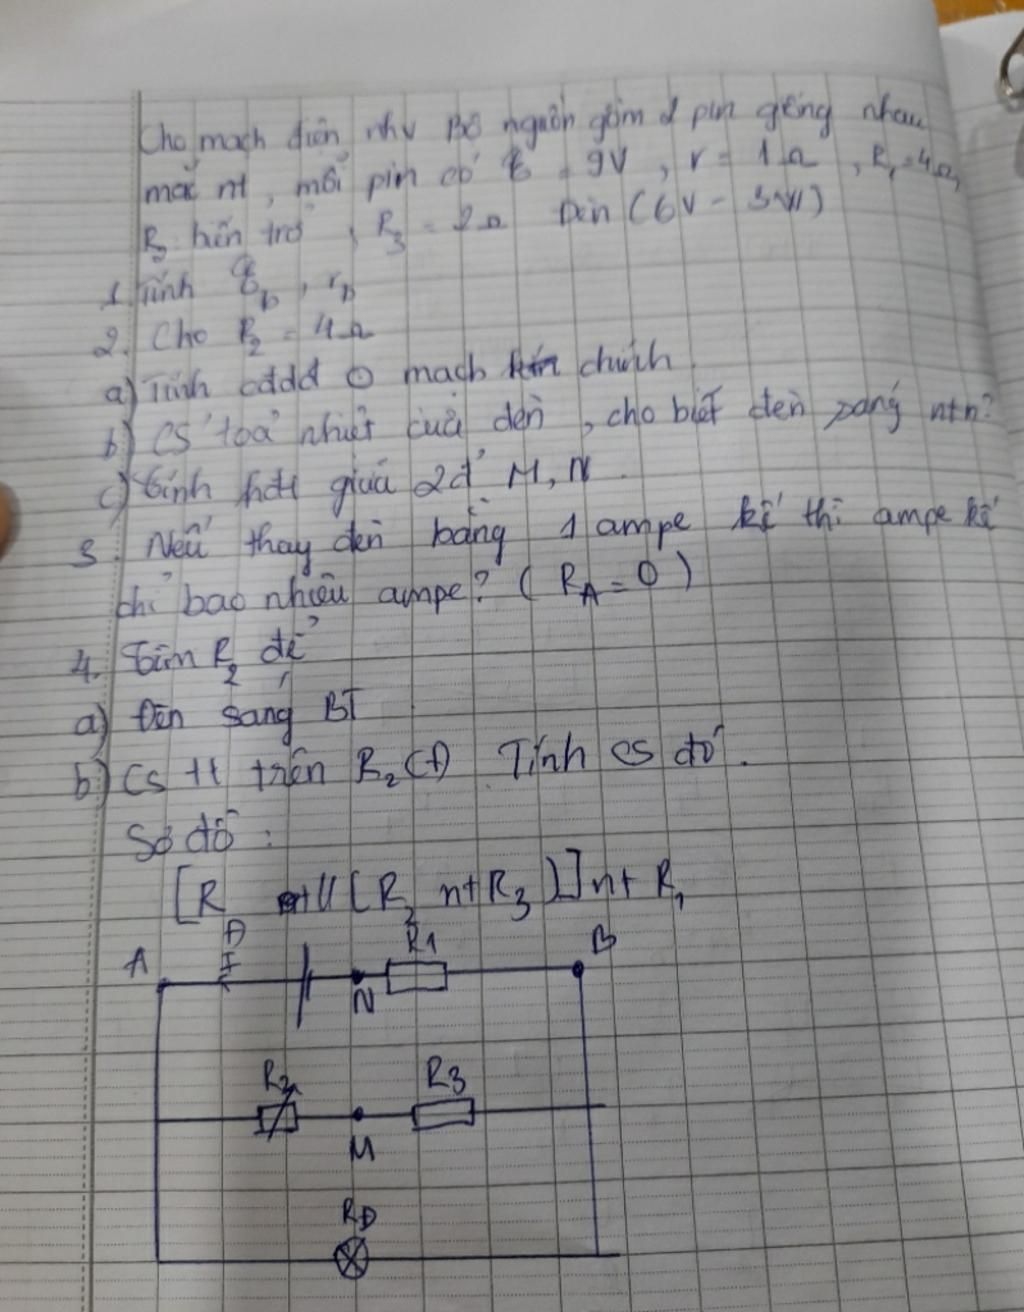 Cho mạch điện như Bộ nguồn gồm 2 pin giống nhau
mắc nt, mỗi pin có ℰ = 9V, r = 1Ω, R₁ = 4Ω,
R₂ biến trở, R₃ = 2Ω Đèn (6V - 3W)
1. Tính ℰb, rb
2. Cho R₂ = 4Ω
a) Tính cđdđ mạch chính
b) CS toả nhiệt của đèn, cho biết đèn sáng ntn?
c) Tính hđt giữa 2đ' M, N.
3. Nếu thay đèn bằng 1 ampe kế thì ampe kế
chỉ bao nhiêu ampe? (RA = 0)
4. Tìm R₂ để
a) Đèn sáng BT
b) Cs tt trên R₂ CĐ. Tính cs đó.
Sơ đồ:
[R // (R₂ nt R₃)] nt R₁
A I N R1 B
R2 M R3
RĐ